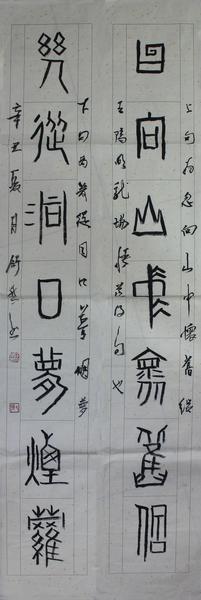 忽向山中懷舊侶
上句為忽向山中懷舊侶
王陽明龍場悟道句也
幾從洞口夢煙蘿
下句為幾從洞口
辛丑夏月舒